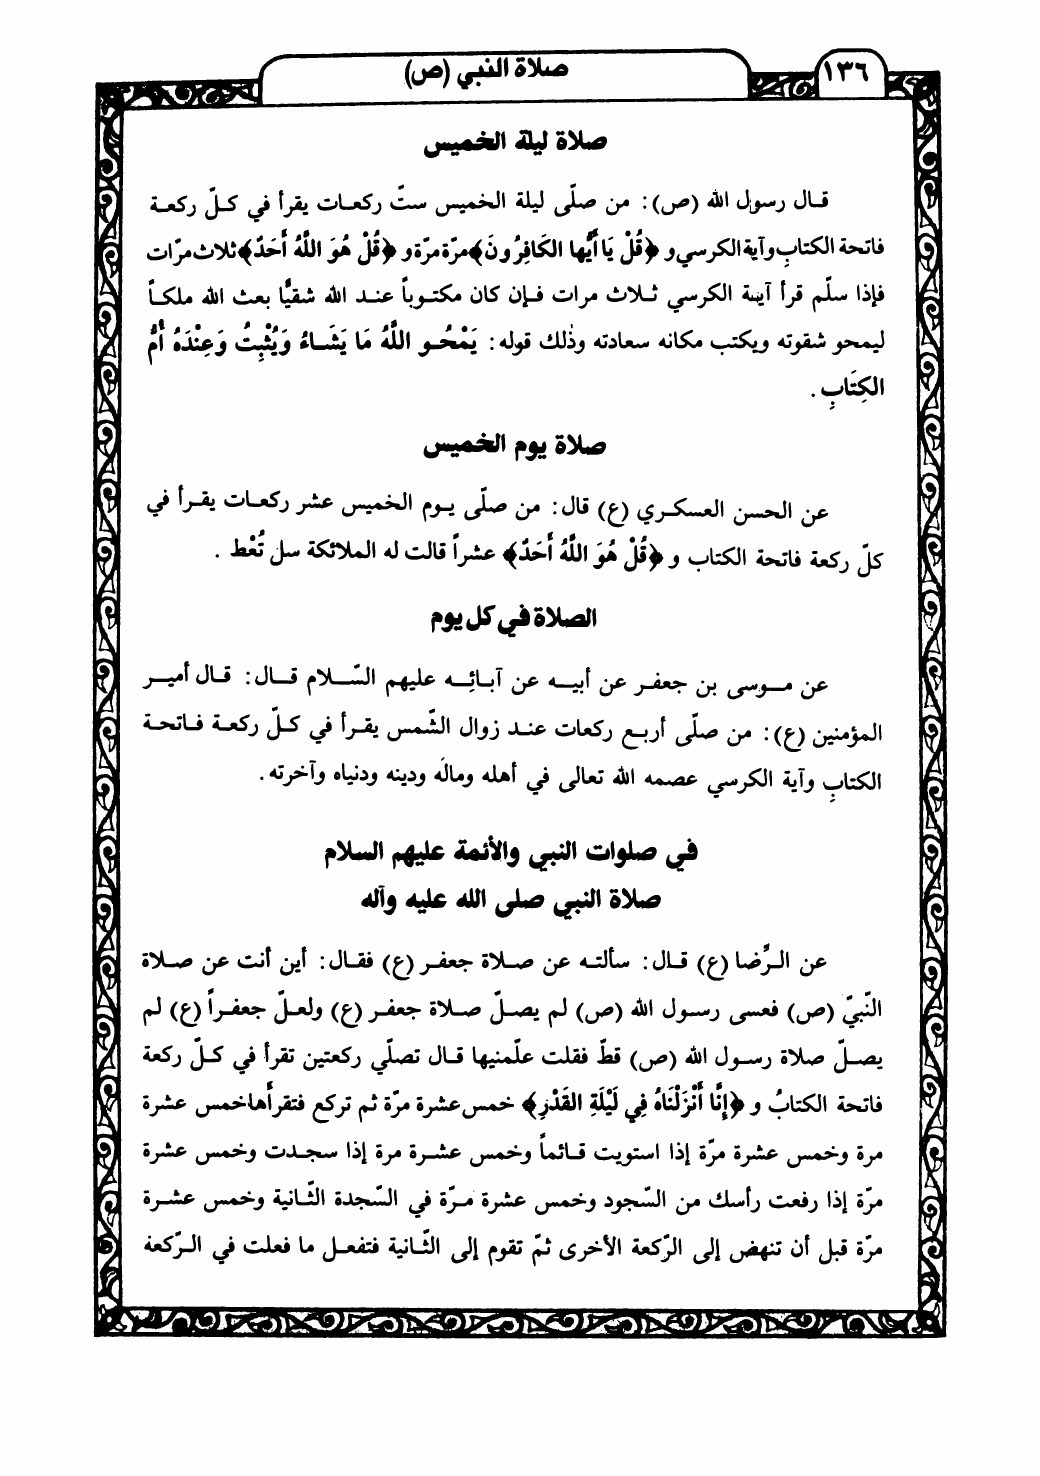 ١٣٦
صلاة النبي (ص)
صلاة ليلة الخميس
قـال رسول الله (ص): من صلّى ليلة الخميس ستّ ركعـات يقرأ في كـلّ ركعـة
فاتحة الكتابِ وآية الكرسي و ﴿قُلْ يَا أَيُّها الكَافِرُونَ﴾ مرّة مرّة و ﴿قُلْ هُوَ اللَّهُ أَحَدٌ﴾ ثلاث مرّات
فإذا سلّم قرأ آيـة الكرسي ثـلاث مرات فـإن كان مكتـوباً عنـد الله شقيًّا بعث الله ملكـاً
ليمحو شقوته ويكتب مكانه سعادته وذٰلك قوله: يَمْحُـو اللَّهُ مَا يَشَـاءُ وَيُثْبِتُ وَعِنْدَهُ أُمُّ
الكِتَابِ.
صلاة يوم الخميس
عن الحسن العسكـري (ع) قال: من صلّى يـوم الخميس عشر ركعـات يقـرأ في
كلّ ركعة فاتحة الكتاب و ﴿قُلْ هُوَ اللَّهُ أَحَدٌ﴾ عشراً قالت له الملائكة سل تُعْط .
الصلاة في كل يوم
عن مـوسى بن جعفـر عن أبيـه عن آبـائِـه عليهم السّـلام قـال: قـال أميـر
المؤمنين (ع): من صلّى أربـع ركعات عنـد زوال الشّمس يقـرأ في كـلّ ركعـة فـاتحـة
الكتابِ وآية الكرسي عصمه الله تعالى في أهله ومالَه ودينه ودنياه وآخرته.
في صلوات النبي والأئمة عليهم السلام
صلاة النبي صلى الله عليه وآله
عن الـرِّضا (ع) قـال: سألتـه عن صـلاة جعفـر (ع) فقـال: أين أنت عن صـلاة
النّبيّ (ص) فعسى رسـول الله (ص) لم يصـلّ صـلاة جعفـر (ع) ولعـلّ جعفـراً (ع) لم
يصـلّ صلاة رسـول الله (ص) قطّ فقلت علّمنيها قـال تصلّي ركعتين تقرأ في كـلّ ركعة
فاتحة الكتابُ و ﴿إِنَّا أَنْزَلْنَاهُ فِي لَيْلَةِ القَدْرِ﴾ خمس عشرة مرّة ثم تركع فتقرأها خمس عشرة
مرة وخمس عشرة مرّة إذا استويت قـائماً وخمس عشـرة مرة إذا سجـدت وخمس عشرة
مرّة إذا رفعت رأسك من السّجود وخمس عشرة مـرّة في السّجدة الثّانية وخمس عشـرة
مرّة قبل أن تنهض إلى الرّكعة الأخرى ثمّ تقوم إلى الثّـانية فتفعـل ما فعلت في الـرّكعة